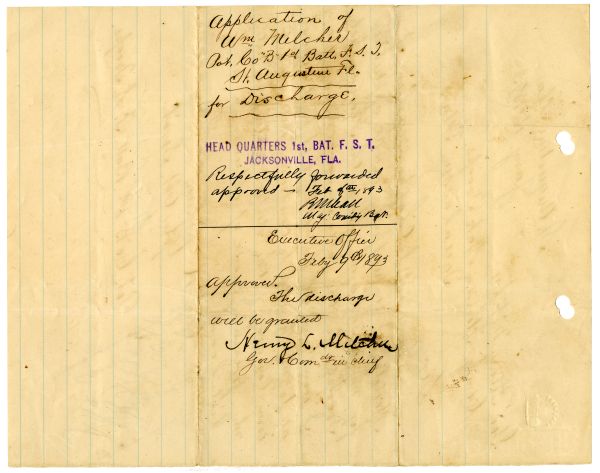 Application of
Wm Melcher
Pvt. Co "B" 1st Batt. F. S. T.
St. Augustine Fl.
for Discharge.
HEAD QUARTERS 1st, BAT. F. S. T.
JACKSONVILLE, FLA.
Respectfully forwarded
approved — Feb 1893
Maj. Batt.
Executive Office
Feby 9th 1893
Approved.
The discharge
will be granted
Henry L. Mitchell
Gov. & Comdr in chief